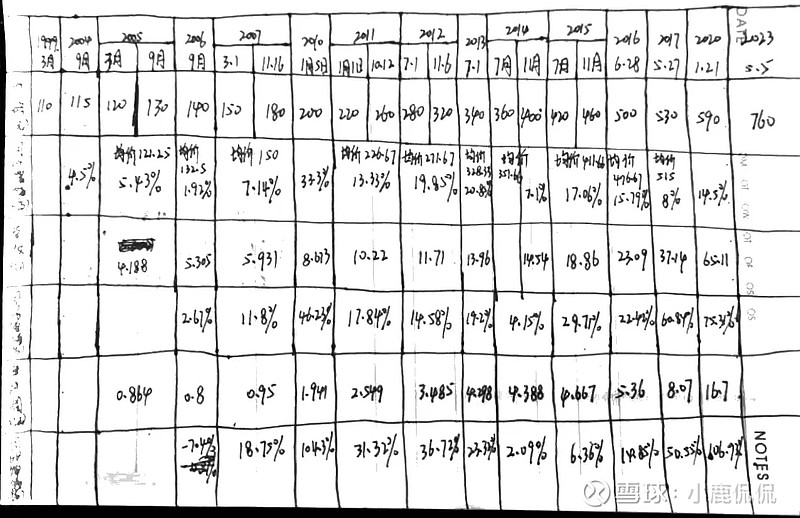 1999 2004 2005 2006 2007 2010 2011 2012 2013 2014 2015 2016 2017 2020 DATE 2023
3月 9月 3月 9月 9月 3.1 11.16 1月5日 1月11日 10.12 7.1 11.6 7.1 7月 11月 7月 11月 6.28 5.27 1.21 5.5
110 115 120 130 140 150 180 200 220 260 280 320 340 360 400 420 460 500 530 590 760
均价121.25 均价132.5 均价150 均价226.67 均价271.67 均价328.33 均价357.66 均价 均价476.67 均价515
4.5% 5.43% 1.92% 7.14% 33.3% 13.33% 19.85% 20.8% 7.1% 17.06% 15.79% 8% 14.5%
4.188 5.305 5.931 8.673 10.22 11.71 13.96 14.54 18.86 23.09 37.14 65.11
2.67% 11.8% 46.23% 17.84% 14.58% 19.2% 4.15% 29.71% 22.42% 60.84% 75.31%
0.864 0.8 0.95 1.941 2.549 3.485 4.298 4.388 4.667 5.36 8.07 16.7
-7.04% 18.75% 104.3% 31.32% 36.72% 23.33% 2.09% 6.36% 14.85% 50.55% 106.9%
NOTES
雪球:小鹿侃侃